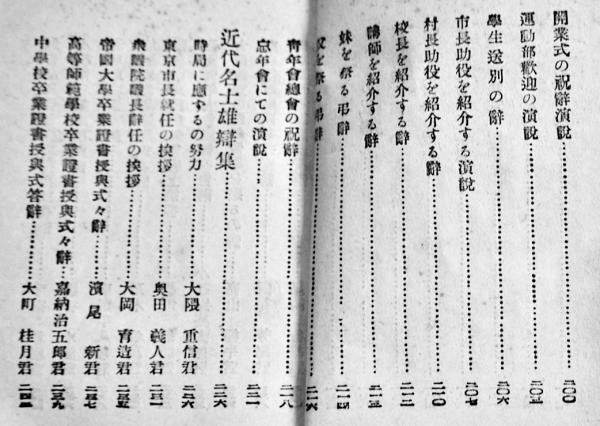 開業式の祝辭演說……二〇〇
運動部歡迎の演說……二〇三
學生送別の辭……二〇六
市長助役を紹介する演說……二〇七
村長助役を紹介する辭……二一〇
校長を紹介する辭……二一二
講師を紹介する辭……二一三
妹を祭る弔辭……二一四
父を祭る弔辭……二一六
青年會總會の祝辭……二一八
忘年會にての演說……二二一
近代名士雄辯集……二二六
時局に應ずるの努力……大隈重信君 二二六
東京市長就任の挨拶……奥田義人君 二三一
衆議院議長辭任の挨拶……大岡育造君 二三五
帝國大學卒業證書授與式々辭……濱尾新君 二三七
高等師範學校卒業證書授與式々辭……嘉納治五郎君 二三九
中學校卒業證書授與式答辭……大町桂月君